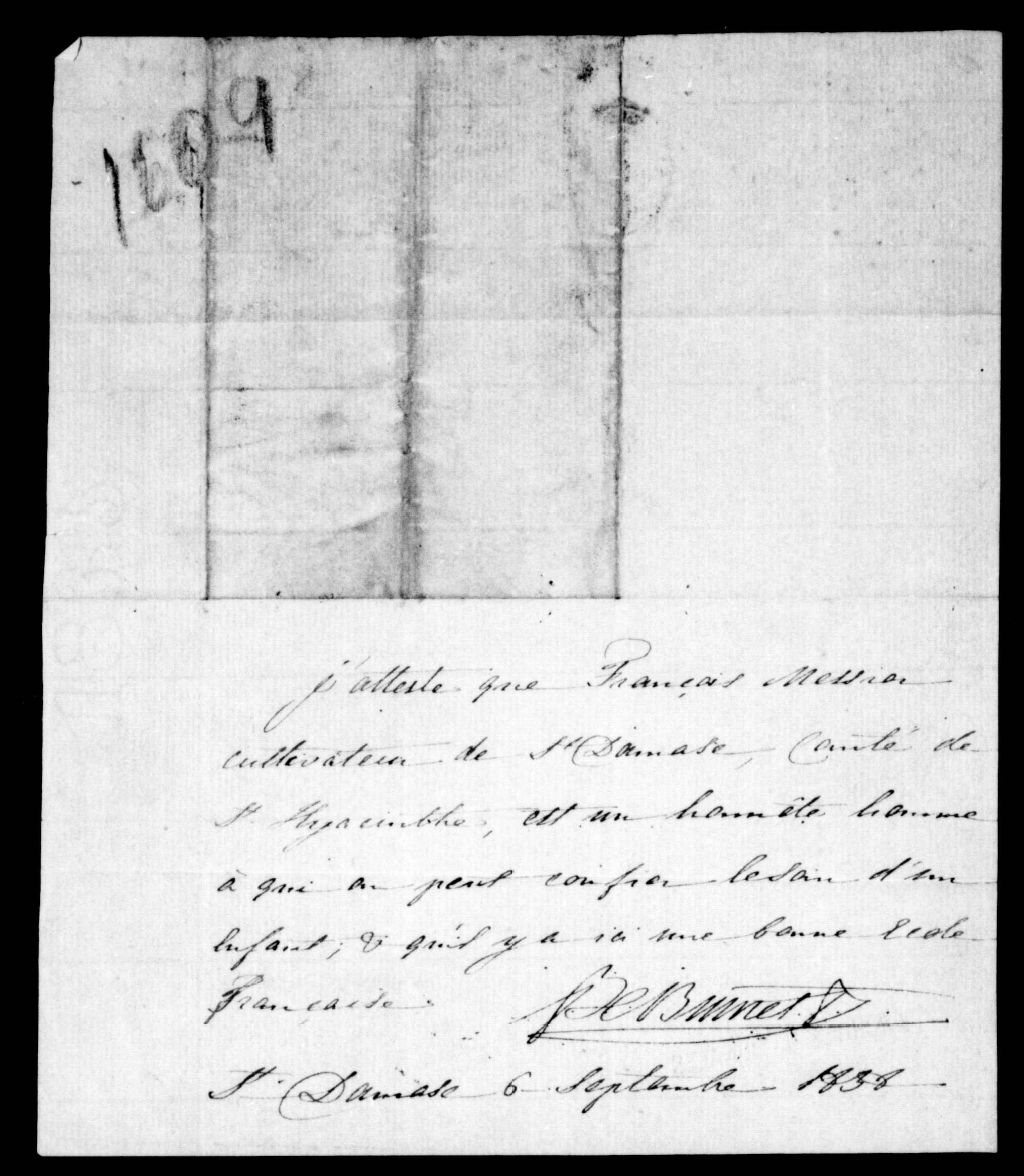 1899
j'atteste que François Messier
cultivateur de St Damase, Comté de
St. Hyacinthe, est un honnête homme
à qui on peut confier le soin d'un
enfant; & qu'il y a ici une bonne Ecole
Française.
Burnet Ptr
St. Damase 6 Septembre 1838